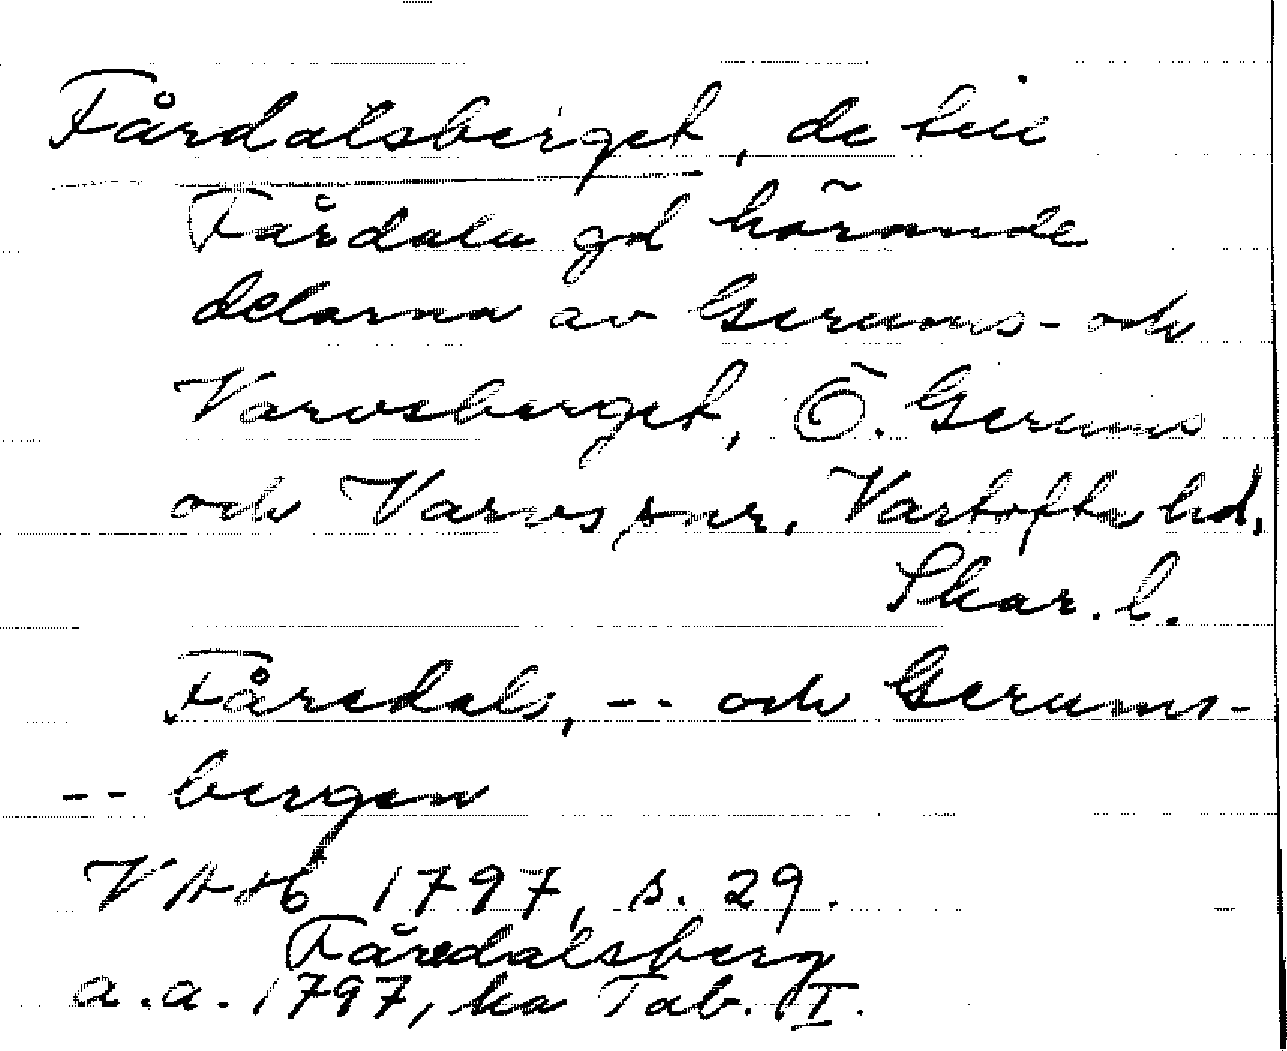 Fårdalsberget, de till
Fårdala gd hörande
delarna av Gerums- och
Varvsberget, Ö. Gerums
och Varvs snr. Vartofta hd.
Skar. l.
Făredals, -- och Gerums-
-- bergen
VAH 1797, s. 29.
Făredalsberg
a.a. 1797, ka Tab. I.